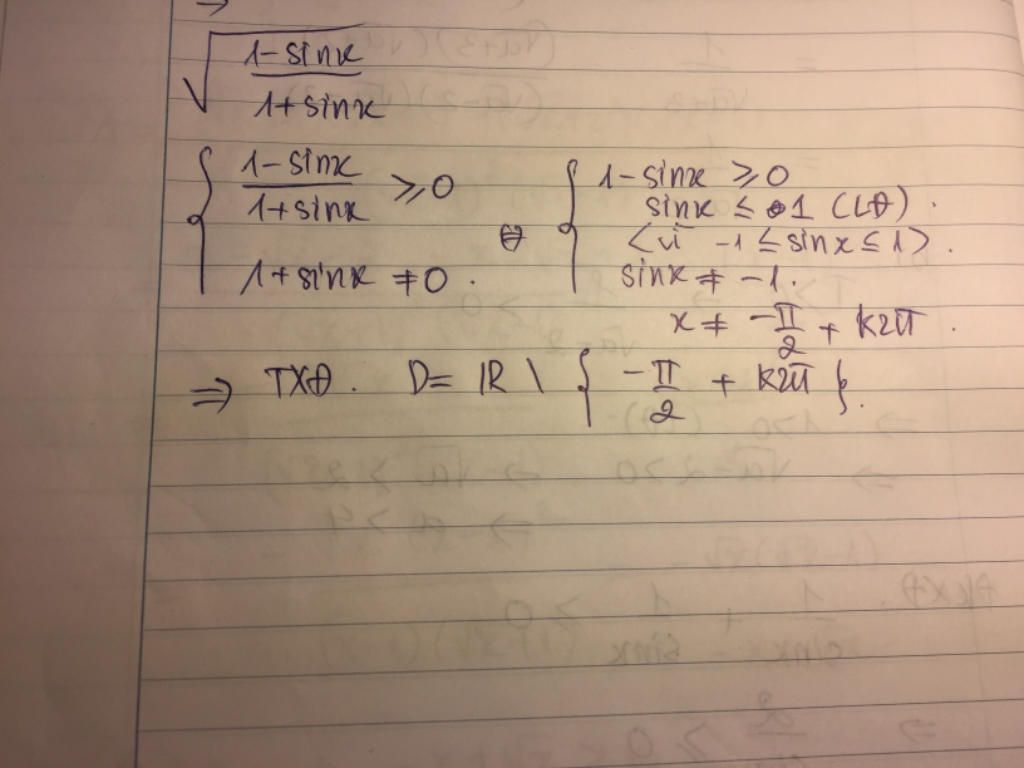 →
√((1-sinx)/(1+sinx))
{ (1-sinx)/(1+sinx) ≥ 0 ⇔ { 1-sinx ≥ 0
sinx ≤ 1 (LĐ).
<vì -1 ≤ sinx ≤ 1>.
1+sinx ≠ 0. sinx ≠ -1.
x ≠ -π/2 + k2π.
⇒ TXĐ. D= ℝ \ { -π/2 + k2π }.